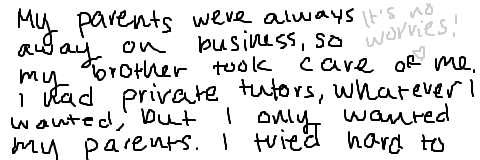 My parents were always
away on business, so
my brother took care of me.
I had private tutors, whatever I
wanted, but I only wanted
my parents. I tried hard to
It's no
worries!